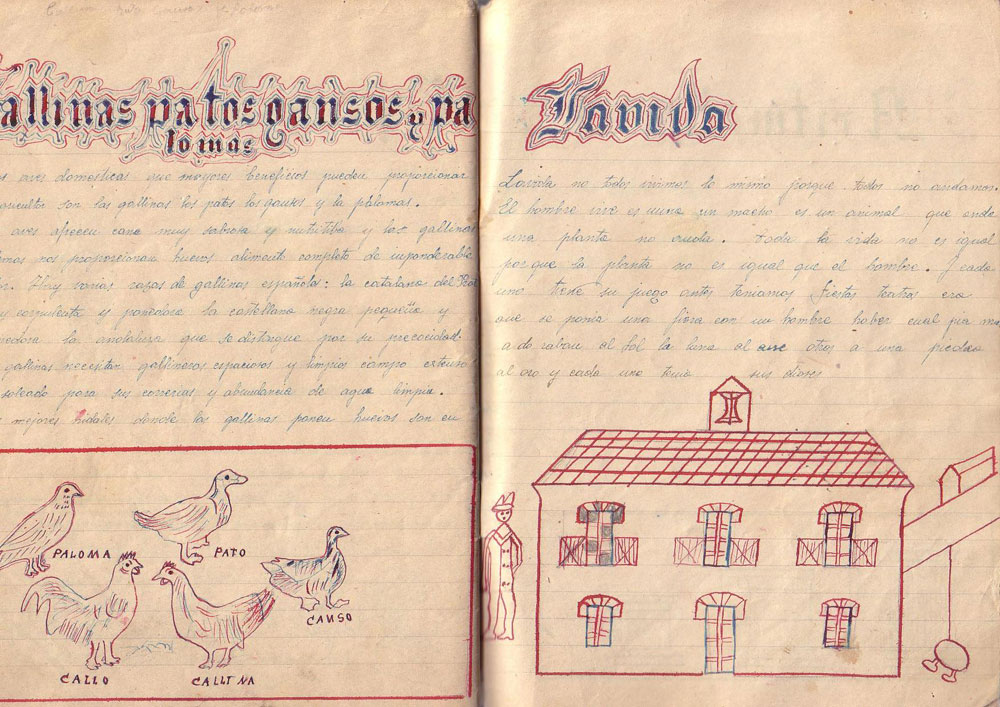 allinas patos gansos y pa
lomas
s aves domesticas que mayores beneficios pueden proporcionar
son las gallinas los patos los gansos y la palomas.
aves ofrecen cane muy sabrosa y nutritiba y las gallinas
nos proporcionan huevos alimento completo de inponderable
r. Hay varias rasas de gallinas española: la catalana del
y corpulenta y ponedora la castellana negra pequeña y
nedora la andaluza que se distingue por su precocidad
gallinas necesitan gallineros espaciosos y limpios campo extenso
soleado para sus correrias y abundancia de agua limpia.
mejores nidales donde las gallinas ponen huevos son en
PALOMA
PATO
GANSO
GALLO
GALLINA
La vida
La vida no todos vivimos lo mismo porque todos no andamos.
El hombre vive es un macho es un animal que anda
una planta no anda. toda la vida no es igual
porque la planta no es igual que el hombre. I cada
uno tiene su juego antes teniamos fiestas teatros era
que se ponia una fiera con un hombre haber cual
adoraban el sol la luna el otros a una piedra
al oro y cada uno tenia sus dioses